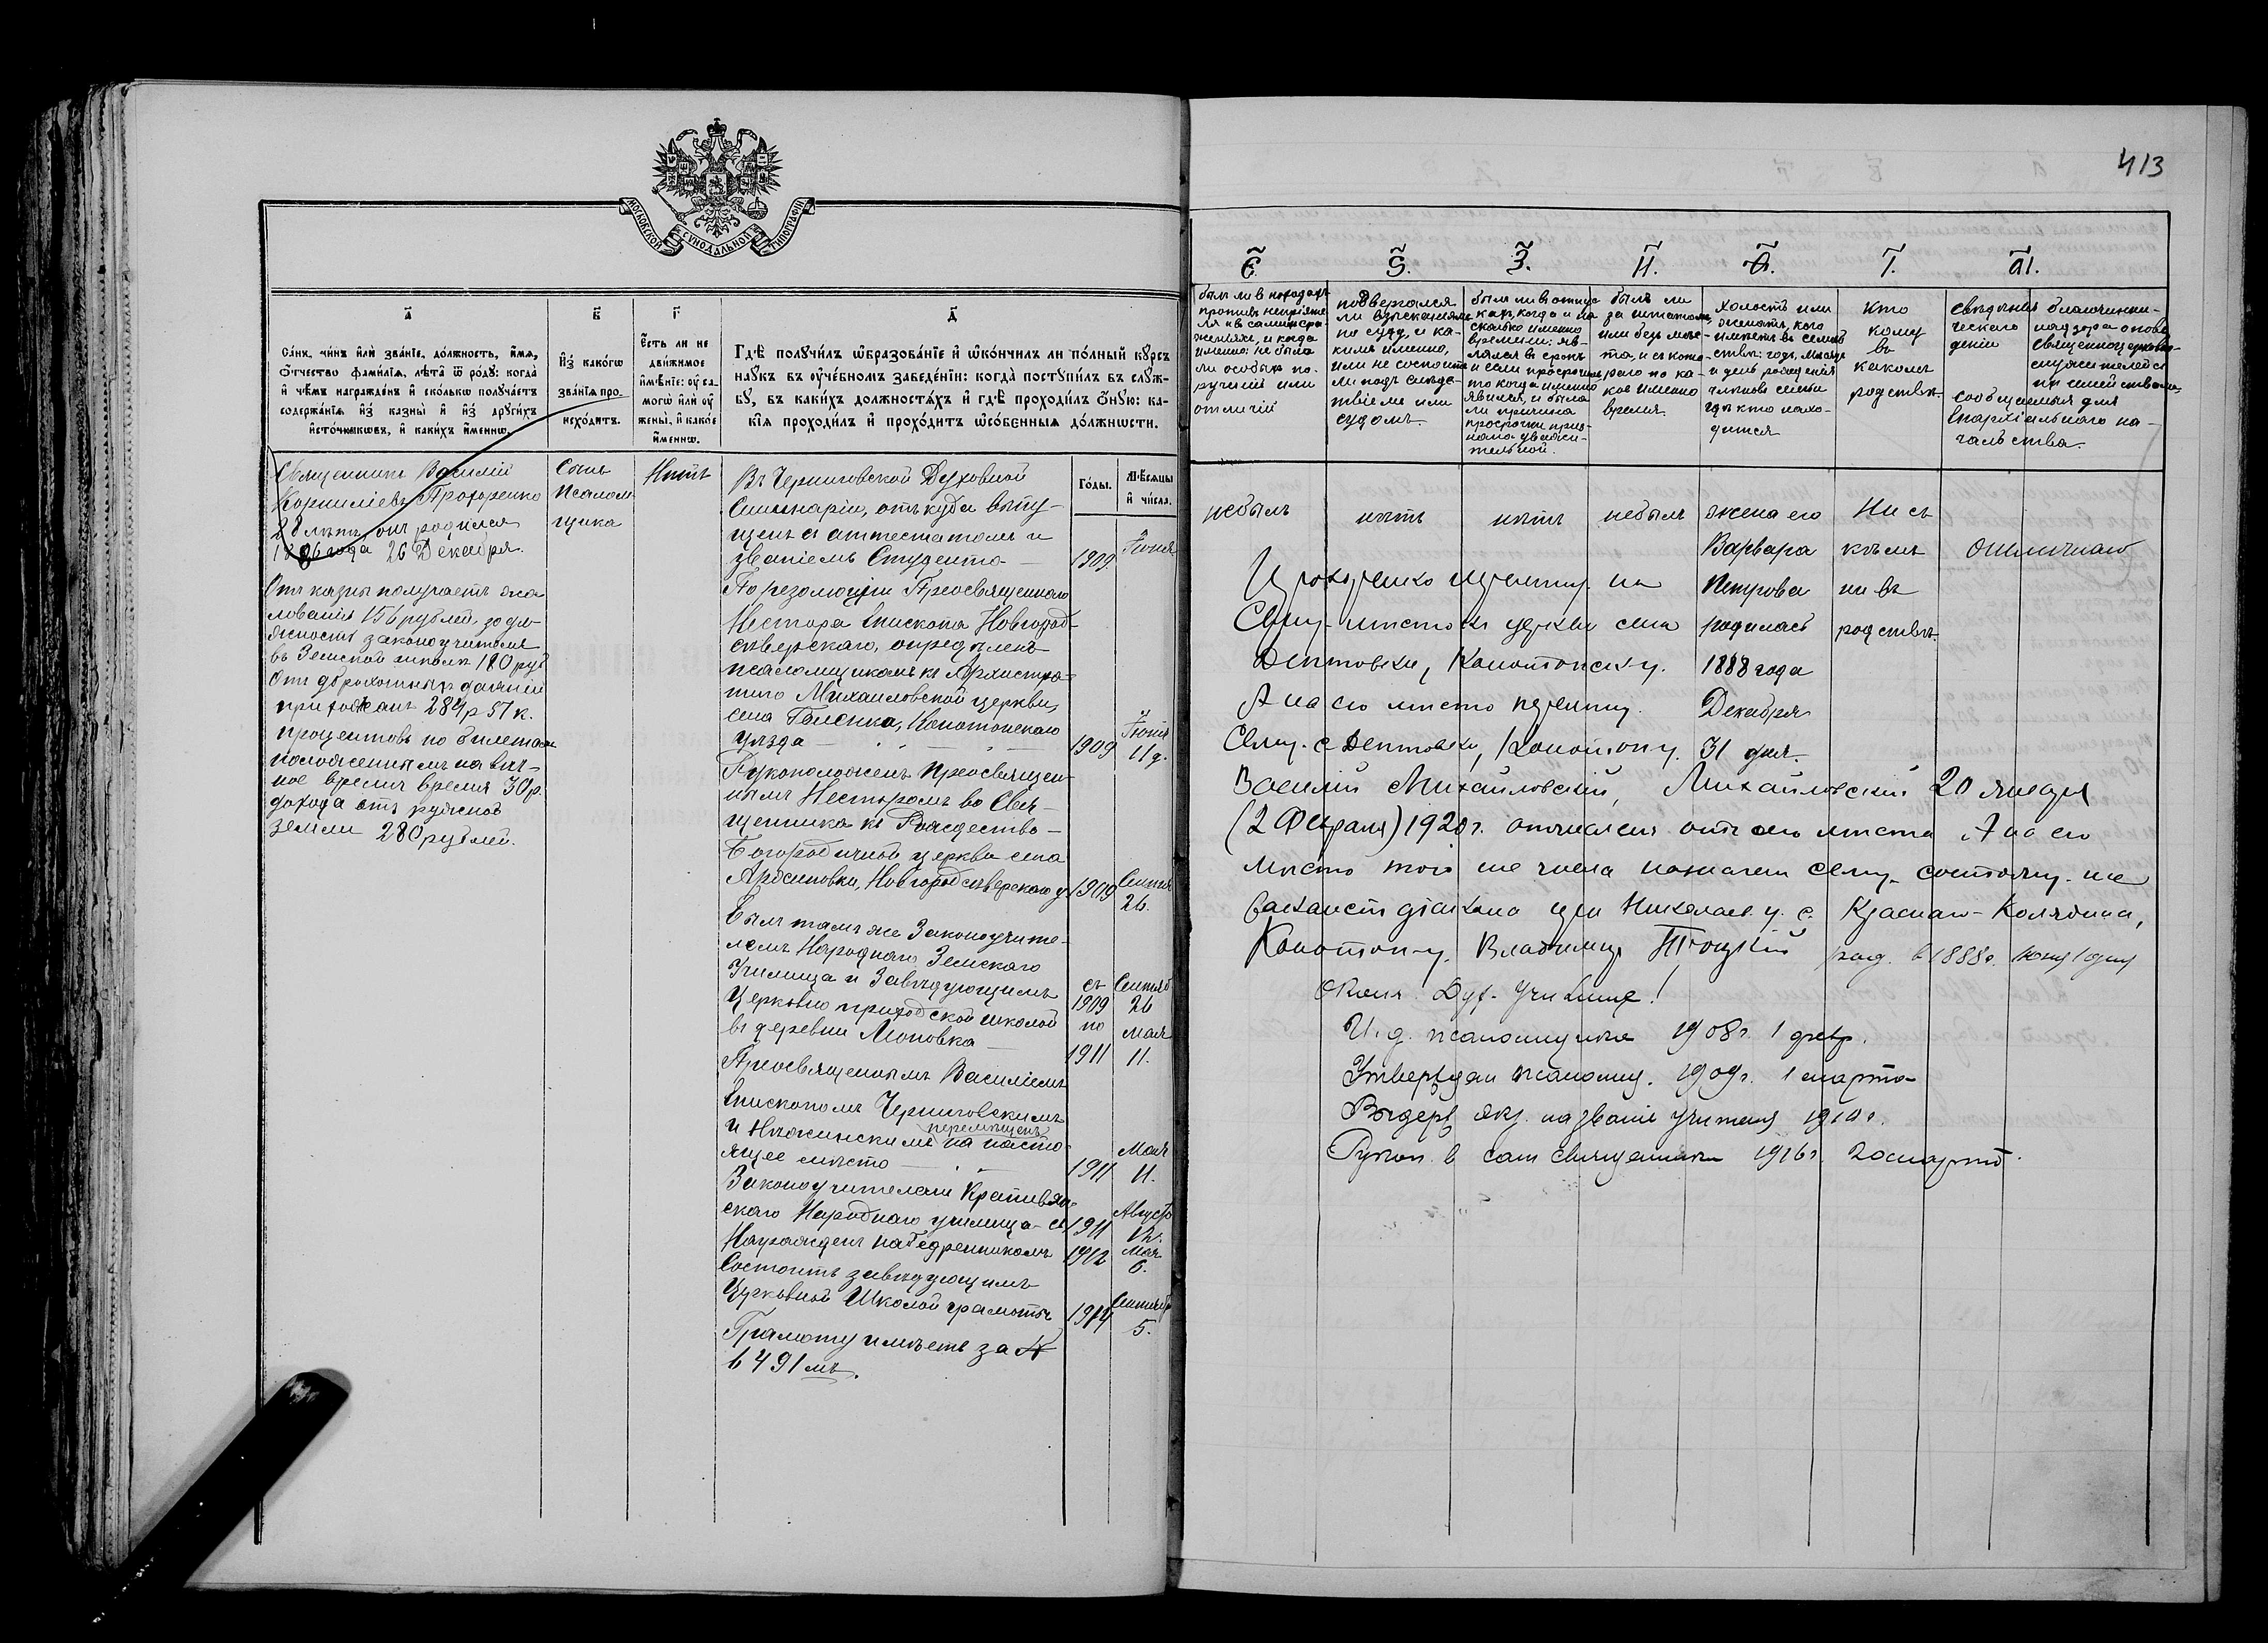 413
МОСКОВСКОЙ СУНОДАЛЬНОЙ ТИПОГРАФІИ
а҃
Са́нъ, чи́нъ и҆лѝ зва́нїе, до́лжность, и҆́мѧ,
ѻ҆́тчество фами́лїѧ, лѣ́та ѿ ро́дꙋ: когда̀
и҆ чѣ́мъ награжде́нъ и҆ ско́лькѡ полꙋча́етъ
содержа́нїѧ и҆з̾ казны̀ и҆ и҆з̾ дрꙋги́хъ
и҆сто́чникѡвъ, и҆ каки́хъ и҆́меннѡ.
в҃
И҆з̾ како́гѡ
зва́нїѧ про-
исхо́дитъ.
г҃
Е҆́сть ли не
дви́жимое
и҆мѣ́нїе: оу҆ са-
могѡ̀ и҆лѝ оу҆
жены̀, и҆ како́е
и҆́меннѡ.
д҃
Гдѣ̀ полꙋчи́лъ ѡ҆бразова́нїе и҆ ѡ҆ко́нчилъ ли по́лный кꙋ́рсъ
наꙋ́къ въ оу҆че́бномъ заведе́нїи: когда̀ постꙋпи́лъ въ слꙋ́ж-
бꙋ, въ каки́хъ до́лжностѧхъ и҆ гдѣ̀ проходи́лъ ѻ҆́нꙋю: ка-
кі́ѧ проходи́лъ и҆ прохо́дитъ ѡ҆со́бенныѧ до́лжнѡсти.
Го́ды.
Мѣ́сѧцы
и҆ чи́сла.
Священникъ Василій
Корниліевъ Прохоренко
28 лѣтъ, онъ родился
1886 года 26 Декабря.
Отъ казны получаетъ жа
лованія 156 рублей, за дол-
жность законоучителя
въ Земской школѣ 120 руб
Отъ доброхотныхъ даяній
прихожанъ 284 р 57 к.
процентовъ по билетамъ
положеннымъ на вѣч-
ное время время 30 р.
дохода отъ ружной
земли 280 рублей.
Сынъ
Псалом
щика
Нѣтъ
Въ Черниговской Духовной
Семинаріи, откуда выпу-
щенъ съ аттестатомъ и
званіемъ Студента — 1909 Іюня
По резолюціи Преосвященнаго
Нестора Епископа Новгород-
сѣверскаго, опредѣленъ
псаломщикомъ къ Архистра-
тиго Михаиловской церкви,
села Галенка, Конотопскаго
уѣзда — 1909 Іюня 11 д.
Рукоположенъ Преосвящен-
нымъ Несторомъ во Свя-
щенника къ Рождество-
Богородичной церкви села
Новгородсѣверскаго у. 1909 Сентяб 26.
Былъ тамъ же Законоучите-
лемъ Народнаго Земскаго
Училища и Завѣдующимъ съ Сентяб
Церковно приходской школой 1909 26
въ деревни по Мая
1911 11.
Преосвященнымъ Василіемъ
Епископомъ Черниговскимъ
перемѣщенъ
и Нѣжинскимъ на насто-
ящее мѣсто — 1911 Мая 11.
Законоучителемъ
скаго Народнаго училища съ 1911 Август
Награжденъ набедренникомъ 1912 Мая 6.
Состоитъ завѣдующимъ
Церковной Школой грамоты 1914 Сентября 5.
Грамоту имѣетъ за №
6491 мъ.
е҃.
ѕ҃.
з҃.
и҃.
ѳ҃.
і҃.
а҃і.
былъ ли в походахъ
противъ непріяте-
ля и в самыхъ сра-
женіяхъ, и когда
именно: не было
ли особыхъ по-
рученій или
отличій
подвергался
ли взысканіямъ
по суду, и ка-
кимъ именно,
или не состоитъ
ли подъ слѣд-
ствіемъ или
судомъ.
былъ ли въ отпус
кахъ, когда и на
сколько именно
времени: яв-
лялся въ срокъ
и если просрочилъ
то когда именно
явился, и была
ли причина
просрочки приз-
нана уважи-
тельной.
былъ ли
за штатомъ,
или безъ мѣс-
та, и съ кото-
раго по ка-
кое именно
время.
холостъ или
женатъ, кого
имѣетъ въ семей
ствѣ: годъ, мѣсяцъ
и день рожденія
членовъ семьи
гдѣ кто нахо-
дится
кто
кому
въ
какомъ
родствѣ.
свѣдѣнія благочинни-
ческаго надзора о пове
деніи священноцерковно-
служителей и
ихъ семействами,
сообщаемыя для
Епархіальнаго на-
чальства.
небылъ
нѣтъ
нѣтъ
небылъ
жена его
Варвара
Петрова
родилась
1888 года
Декабря
31 дня.
Ни съ
кѣмъ
ни въ
родствѣ.
отличнаго
Прохоренко перемѣщ. на
Свящ. мѣсто къ церкви села
Дептовки, Конотопск. у.
А на его мѣсто перемѣщ.
Свящ. с. Дептовки, Конотоп. у.
Василій Михайловскій, Михайловскій 20 января
(2 Февраля) 1920 г. отчислен отъ сего мѣста А на его
мѣсто того же числа назначен свящ. состоящ. на
вакансіи діакона при Николаев. ц. с. Краснаго-Колядина,
Конотоп. у. Владимир Троцкій род. в 1888 г. 1 дня
Оконч. Дух. Училище!
И. д. псаломщика 1908 г. 1 февр.
Утвержден псаломщ. 1909 г. 1 марта
Выдерж. экз. на званіе учителя 1910 г.
Рукоп. в сан священника 1916 г. 20 марта.